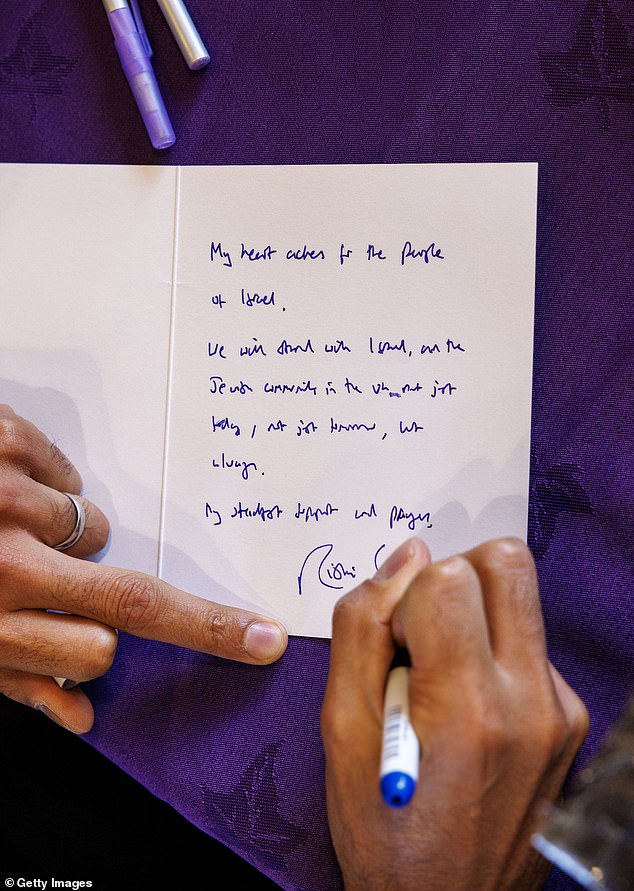 My heart aches for the people
of Israel.
We will stand with Israel, and the
Jewish community in the UK not just
today, not just tomorrow, but
always.
My steadfast support and prayers,
Rishi
© Getty Images